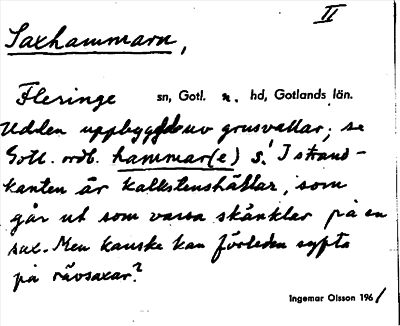 II
Saxhammarn,
Fleringe sn, Gotl. n. hd, Gotlands län.
Udden uppbyggd av grusvallar; se
Gotl. ordb. hammar(e) s.! I strand-
kanten är kalkstenshällar, som
går ut som vassa skänklar på en
sax. Men kanske kan förleden syfta
på rävsaxar?
Ingemar Olsson 1961